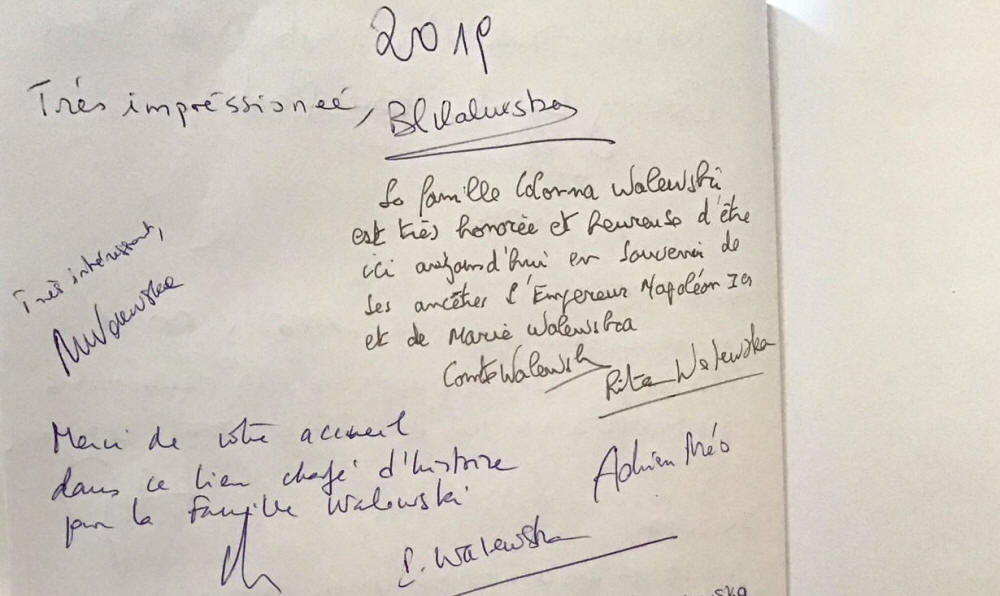 2019
Très impréssioneé, BWalewska
La famille Colonna Walewski
est très honorée et heureuse d'être
ici aujourd'hui en souvenir de
ses ancêtres l'Empereur Napoléon Ier
et de Marie Walewska
Comte Walewski
Rita Walewska
Très intéressant,
MWalewska
Merci de votre accueil
dans ce lieu chargé d'histoire
pour la famille Walewski
Adrien Méo
C. Walewska
ska